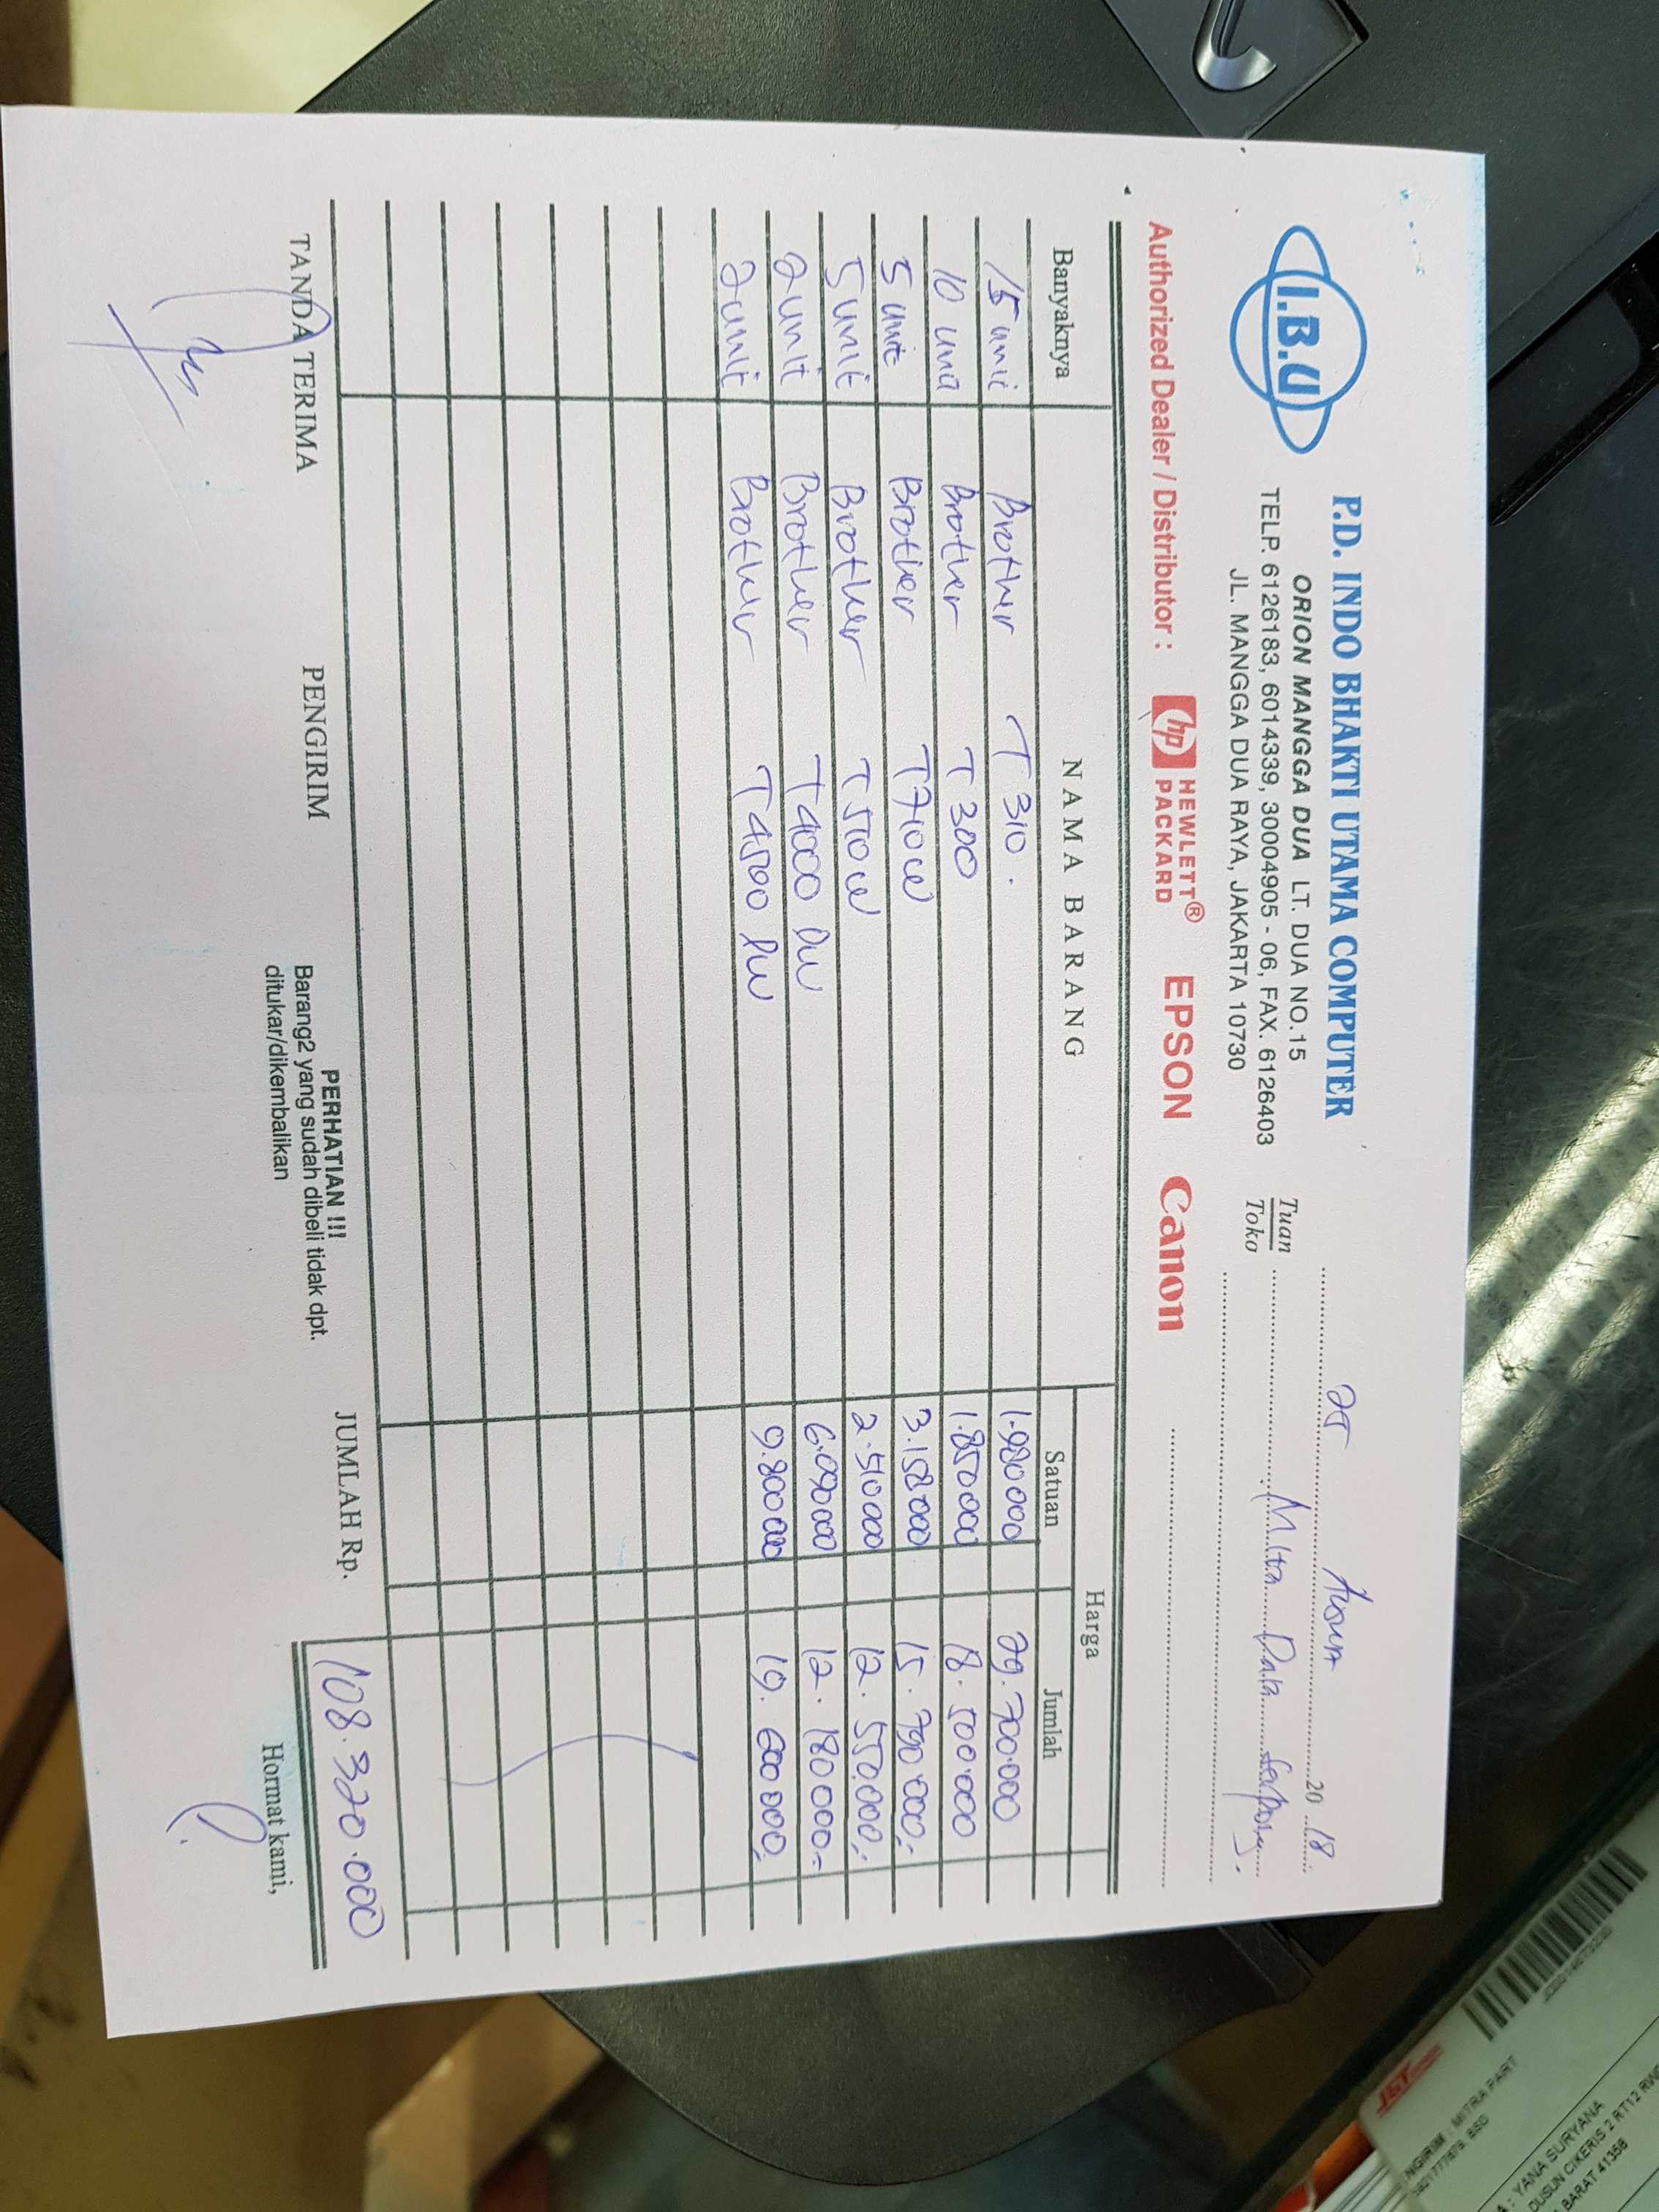 I.B.U
P.D. INDO BHAKTI UTAMA COMPUTER
ORION MANGGA DUA LT. DUA NO.15
TELP. 6126183, 6014339, 30004905 - 06, FAX. 6126403
JL. MANGGA DUA RAYA, JAKARTA 10730
20 18
Tuan
Toko
Mitra Data
Authorized Dealer / Distributor : hp HEWLETT® PACKARD EPSON Canon
Banyaknya NAMA BARANG Harga
Satuan Jumlah
15 unit Brother T 310. 1.980.000 29.700.000
10 unit Brother T 300 1.850000 18.500.000
5 unit Brother T710W 3.158000 15.790.000,-
5 unit Brother T510W 2.510000 12.550.000,-
2 unit Brother T4000 DW 6.090000 12.180000,-
2 unit Brother T4500 DW 9.800000 19.600000,-
JUMLAH Rp. 108.320.000
TANDA TERIMA PENGIRIM
PERHATIAN !!!
Barang2 yang sudah dibeli tidak dpt.
ditukar/dikembalikan
Hormat kami,
J&T
NGIRIM : MITRA PART
BSD
A : YANA SURYANA
DUSUN CIKERIS 2 RT12 RW
BARAT 41356